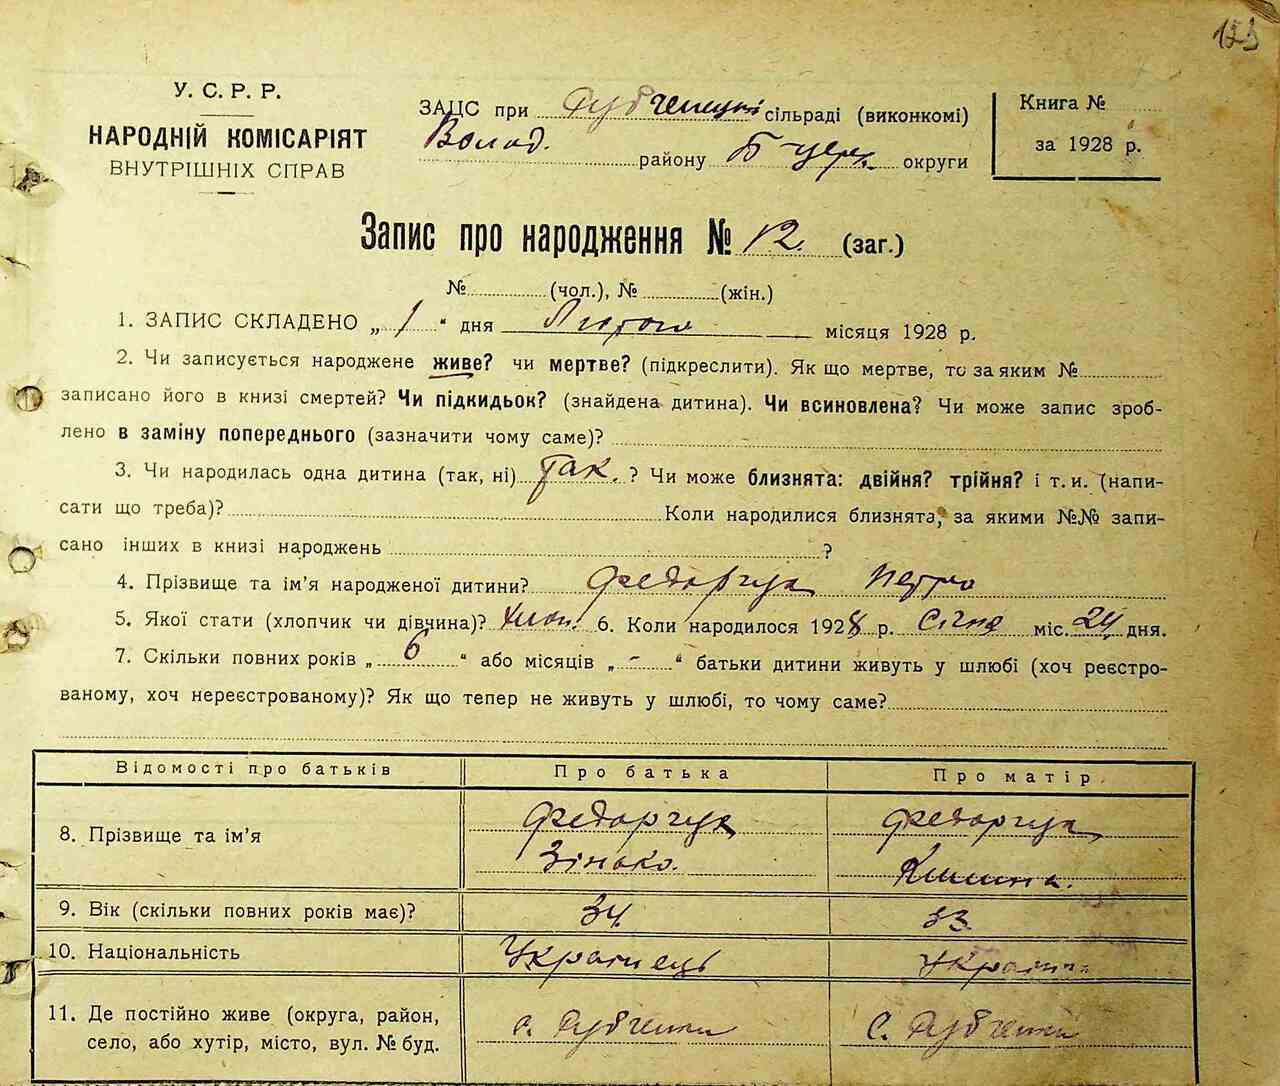 123
У. С. Р. Р.
НАРОДНІЙ КОМІСАРІЯТ
ВНУТРІШНІХ СПРАВ
ЗАЦС при Дубченецкі сільраді (виконкомі)
Волод. району Б церк. округи
Книга №
за 1928 р.
Запис про народження № 12 (заг.)
№ (чол.), № (жін.)
1. ЗАПИС СКЛАДЕНО „ 1 “ дня Лютого місяця 1928 р.
2. Чи записується народжене живе? чи мертве? (підкреслити). Як що мертве, то за яким №
записано його в книзі смертей? Чи підкидьок? (знайдена дитина). Чи всиновлена? Чи може запис зроб-
лено в заміну попереднього (зазначити чому саме)?
3. Чи народилась одна дитина (так, ні) Так. ? Чи може близнята: двійня? трійня? і т. и. (напи-
сати що треба)? Коли народилися близнята, за якими №№ запи-
сано інших в книзі народжень ?
4. Прізвище та ім’я народженої дитини? Федорчук Петро
5. Якої стати (хлопчик чи дівчина)? Хлоп. 6. Коли народилося 1928 р. Січня міс. 24 дня.
7. Скільки повних років „ 6 “ або місяців „ - “ батьки дитини живуть у шлюбі (хоч реєстро-
ваному, хоч нереєстрованому)? Як що тепер не живуть у шлюбі, то чому саме?
Відомості про батьків Про батька Про матір
8. Прізвище та ім’я Федорчук Федорчук
Зінько.
9. Вік (скільки повних років має)? 34 33.
10. Національність Українець Україн.
11. Де постійно живе (округа, район, с. Дубченки с. Дубченки
село, або хутір, місто, вул. № буд.